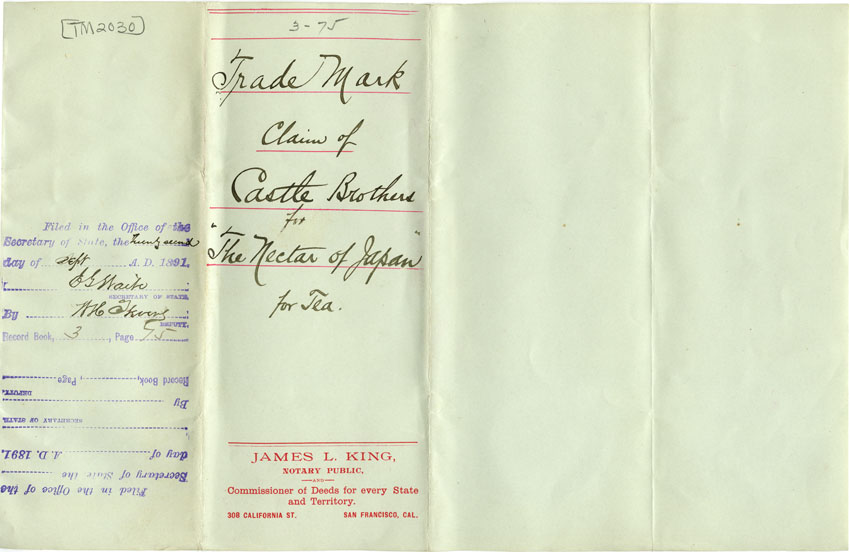 [TM2030]
3-75
Trade Mark
Claim of
Castle Brothers
for
"The Nectar of Japan"
for Tea.
JAMES L. KING,
NOTARY PUBLIC,
—AND—
Commissioner of Deeds for every State
and Territory.
308 CALIFORNIA ST. SAN FRANCISCO, CAL.
Filed in the Office of the
Secretary of State, the twenty second
day of Sept A. D. 1891.
E G Waite
SECRETARY OF STATE,
By
DEPUTY.
Record Book, 3, Page 75
Filed in the Office of the
Secretary of the State the
day of A. D. 1891.
SECRETARY OF STATE.
By
DEPUTY.
Record Book, Page,